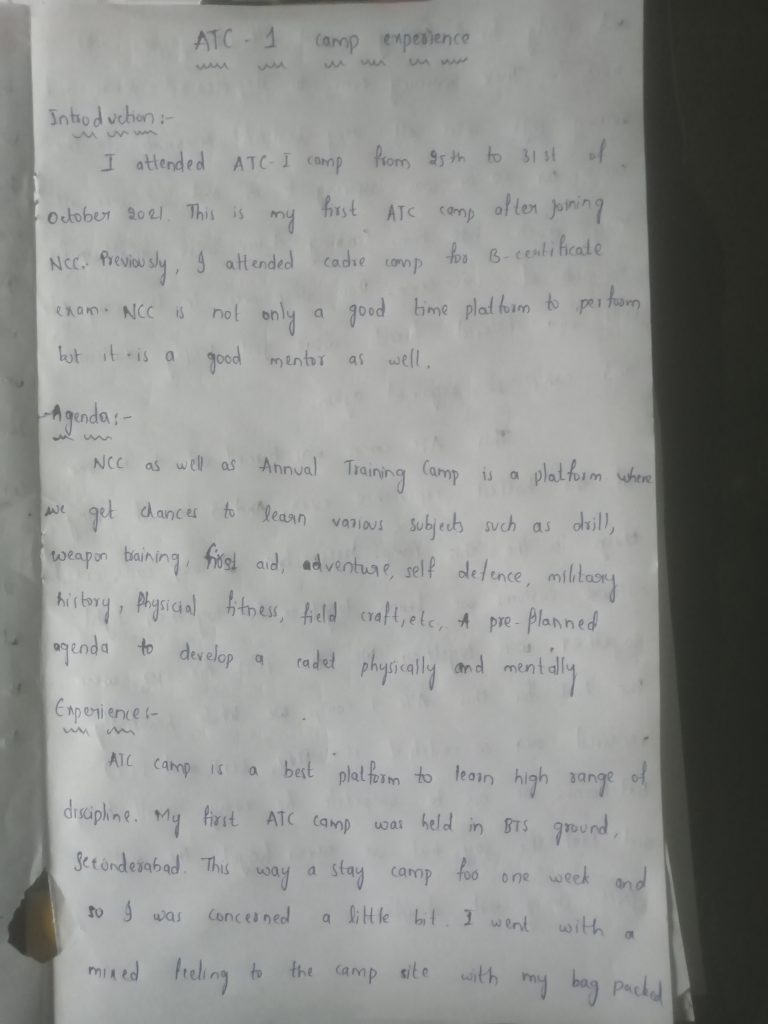 ATC - 1 camp experience
Introduction :-
I attended ATC-I camp from 25th to 31st of
October 2021. This is my first ATC camp after joining
NCC. Previously, I attended cadre camp for B-certificate
exam. NCC is not only a good time platform to perform
but it is a good mentor as well.
Agenda :-
NCC as well as Annual Training Camp is a platform where
we get chances to learn various subjects such as drill,
weapon training, first aid, adventure, self defence, military
history, Physicial fitness, field craft, etc, A pre-planned
agenda to develop a cadet physically and mentally
Experience :-
ATC camp is a best platform to learn high range of
discipline. My first ATC camp was held in BTS ground,
Secunderabad. This way a stay camp for one week and
so I was concerned a little bit. I went with a
mixed feeling to the camp site with my bag packed